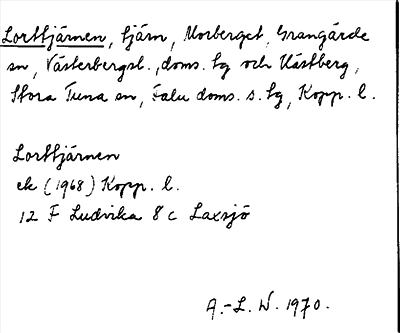 Lorttjärnen, tjärn, Norberget, Grangärde
sn, Västerbergsl., doms. tg och Håstberg,
Stora Tuna sn, Falu doms. s. tg, Kopp. l.
Lorttjärnen
ek (1968) Kopp. l.
12 F Ludvika 8 c Laxsjö
A.-L. W. 1970.